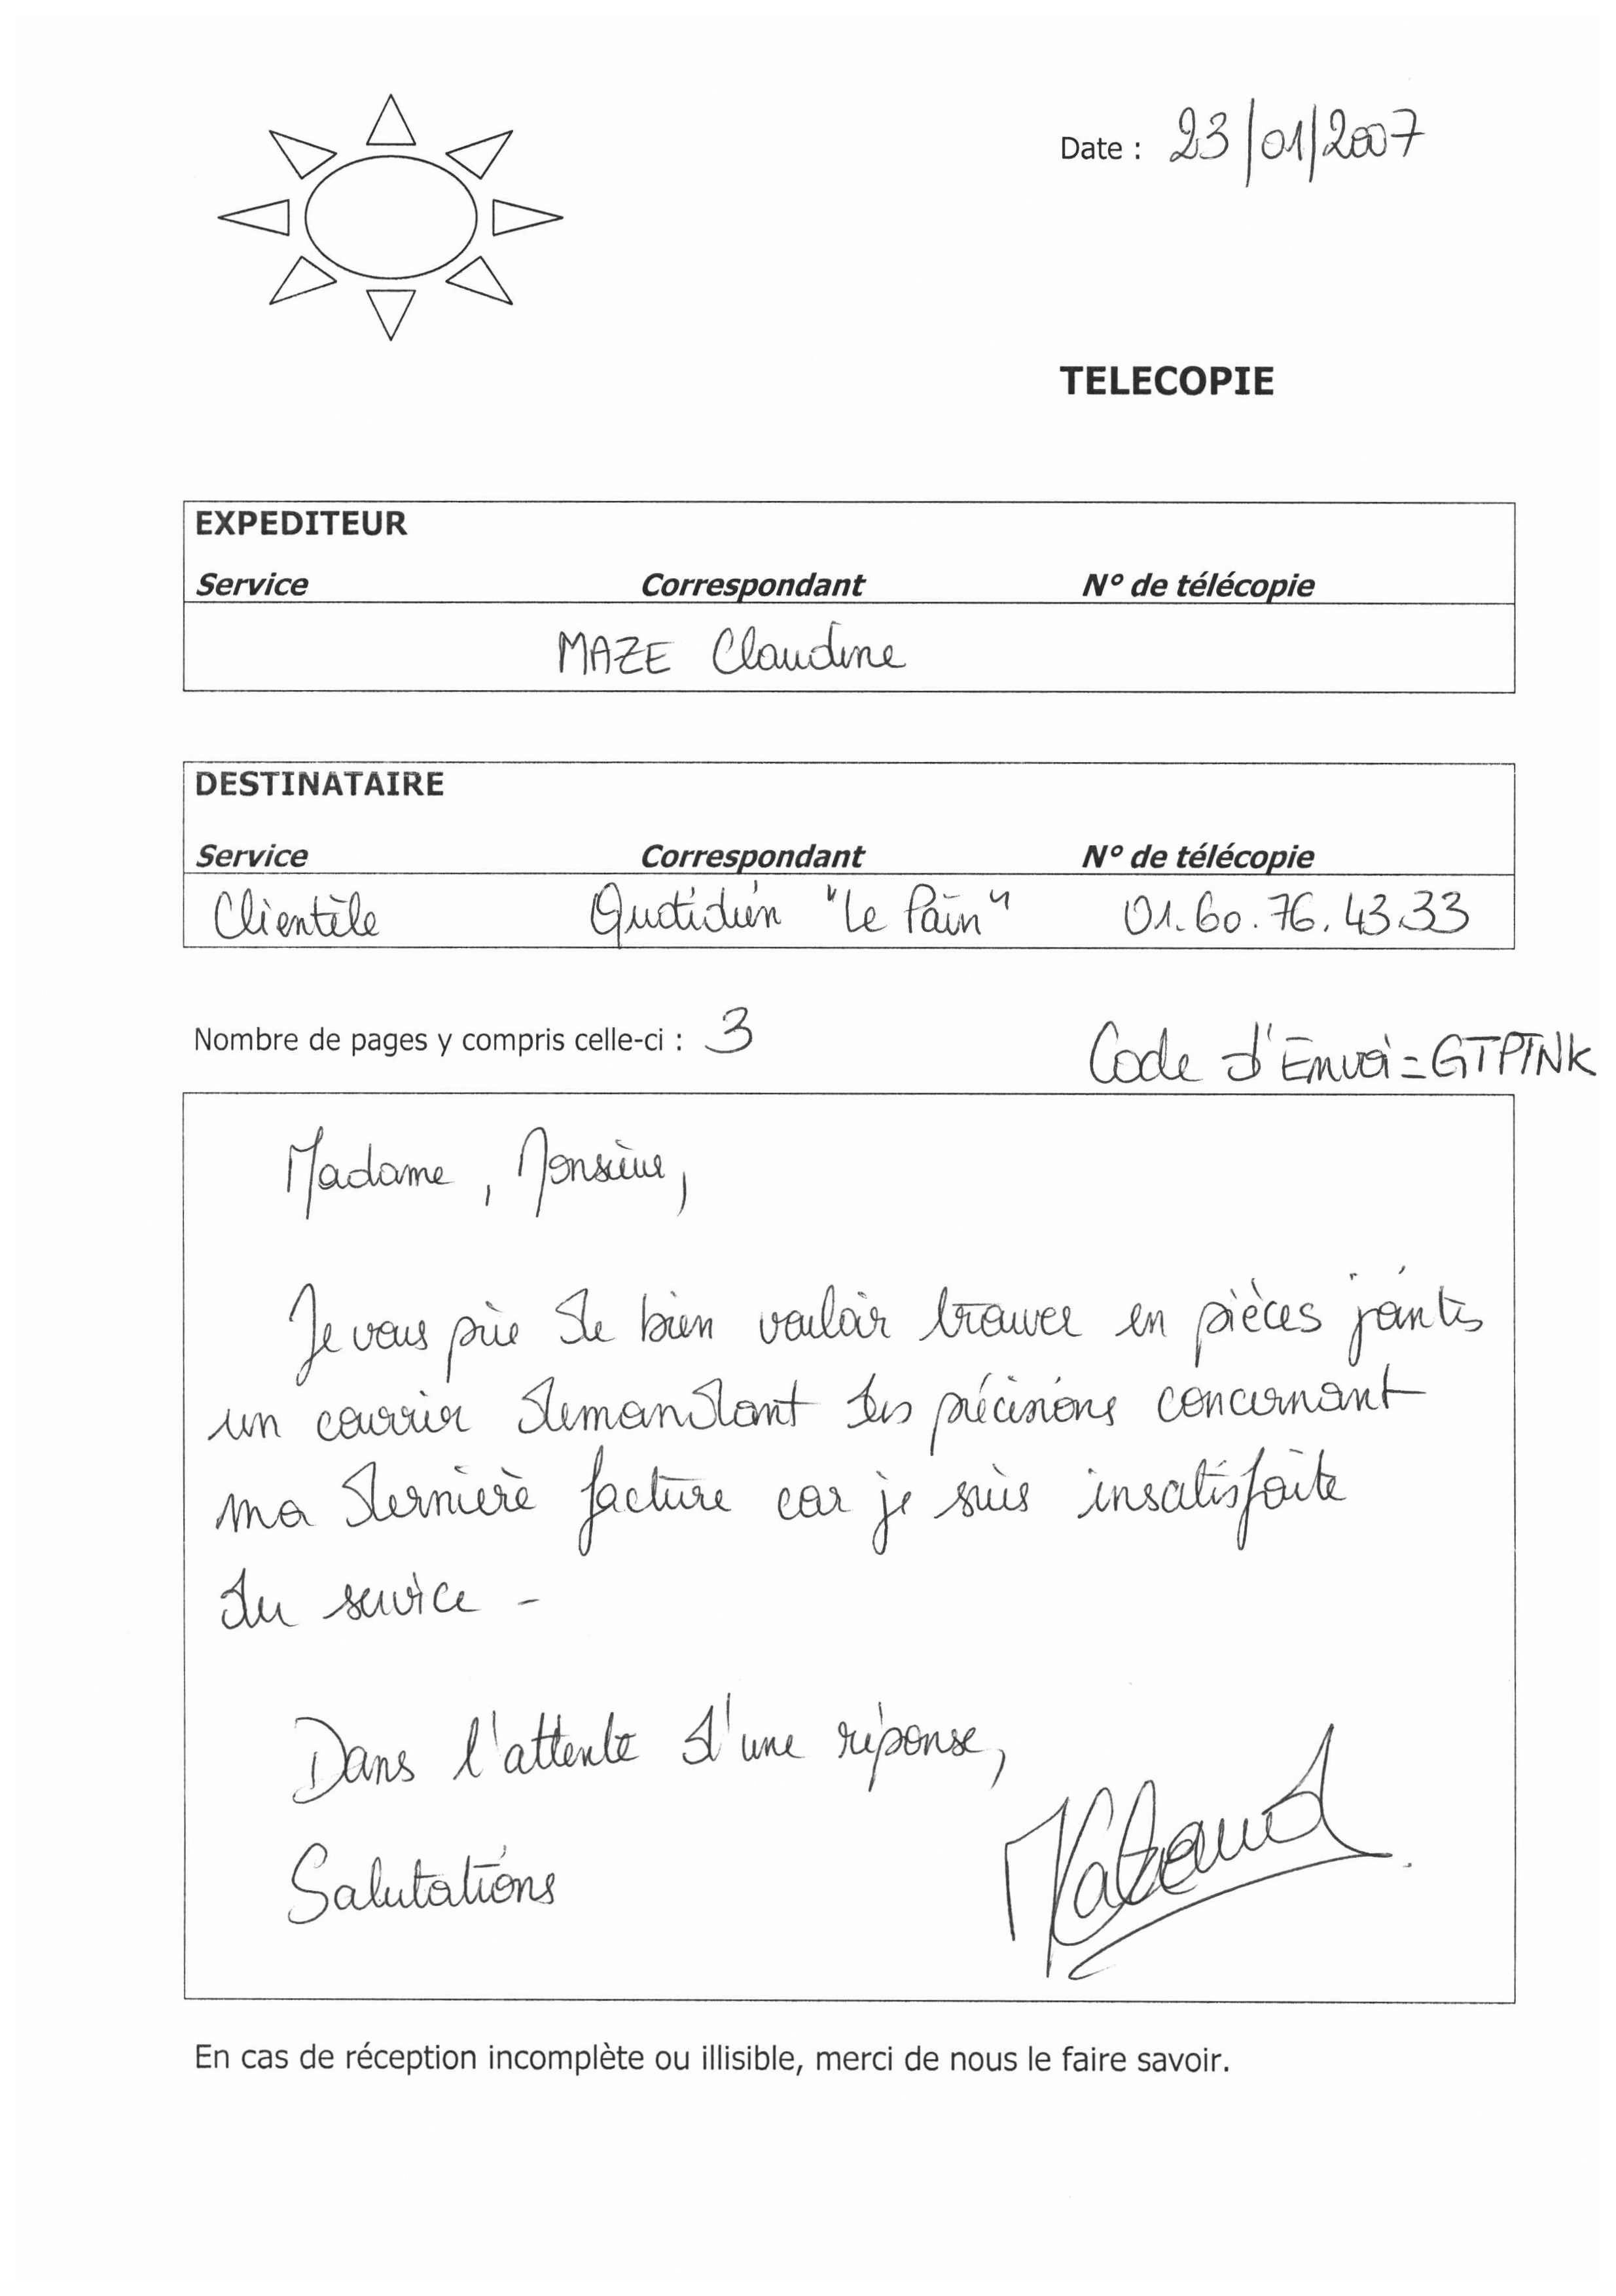 Date : 23/01/2007
TELECOPIE
EXPEDITEUR
Service Correspondant N° de télécopie
MAZE Claudine
DESTINATAIRE
Service Correspondant N° de télécopie
Clientèle Quotidien "Le Pain" 01.60.76.43.33
Nombre de pages y compris celle-ci : 3
Code d'Envoi = GTPTNK
Madame, Monsieur,
Je vous prie de bien vouloir trouver en pièces jointes
un courrier demandant des précisions concernant
ma dernière facture car je suis insatisfaite
du service -
Dans l'attente d'une réponse,
Salutations
En cas de réception incomplète ou illisible, merci de nous le faire savoir.